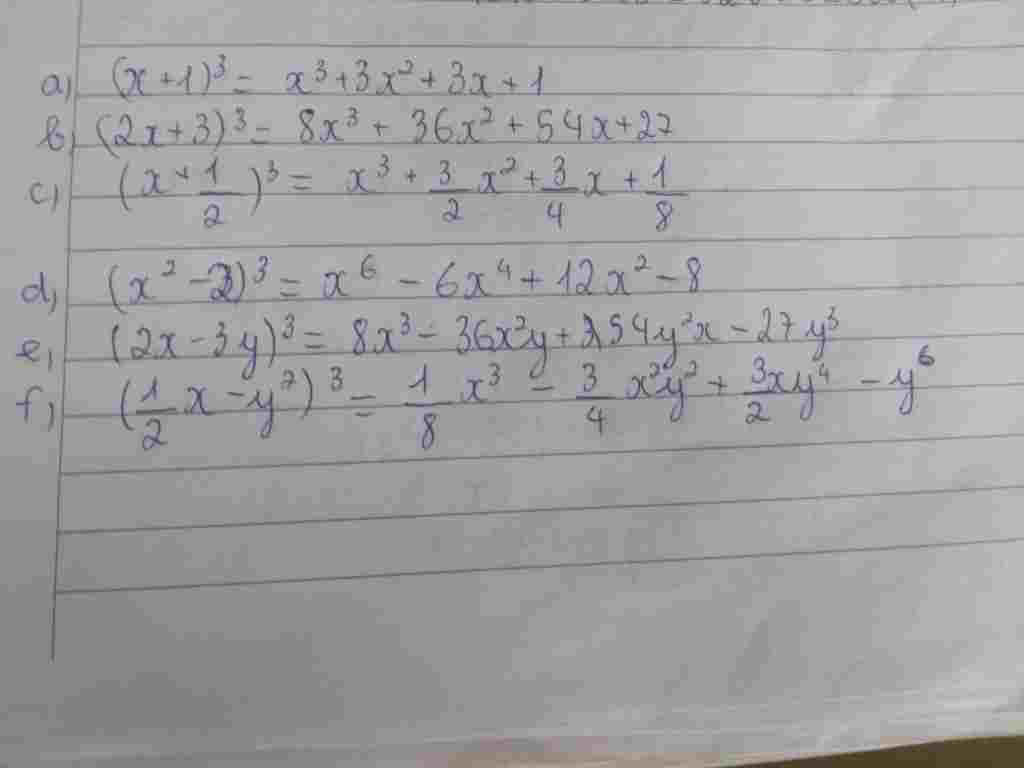 a) (x+1)³ = x³ + 3x² + 3x + 1
b) (2x+3)³ = 8x³ + 36x² + 54x + 27
c) (x + 1/2)³ = x³ + 3/2 x² + 3/4 x + 1/8
d) (x² - 2)³ = x⁶ - 6x⁴ + 12x² - 8
e) (2x - 3y)³ = 8x³ - 36x²y + 54y²x - 27y³
f) (1/2 x - y²)³ = 1/8 x³ - 3/4 x²y² + 3/2 xy⁴ - y⁶